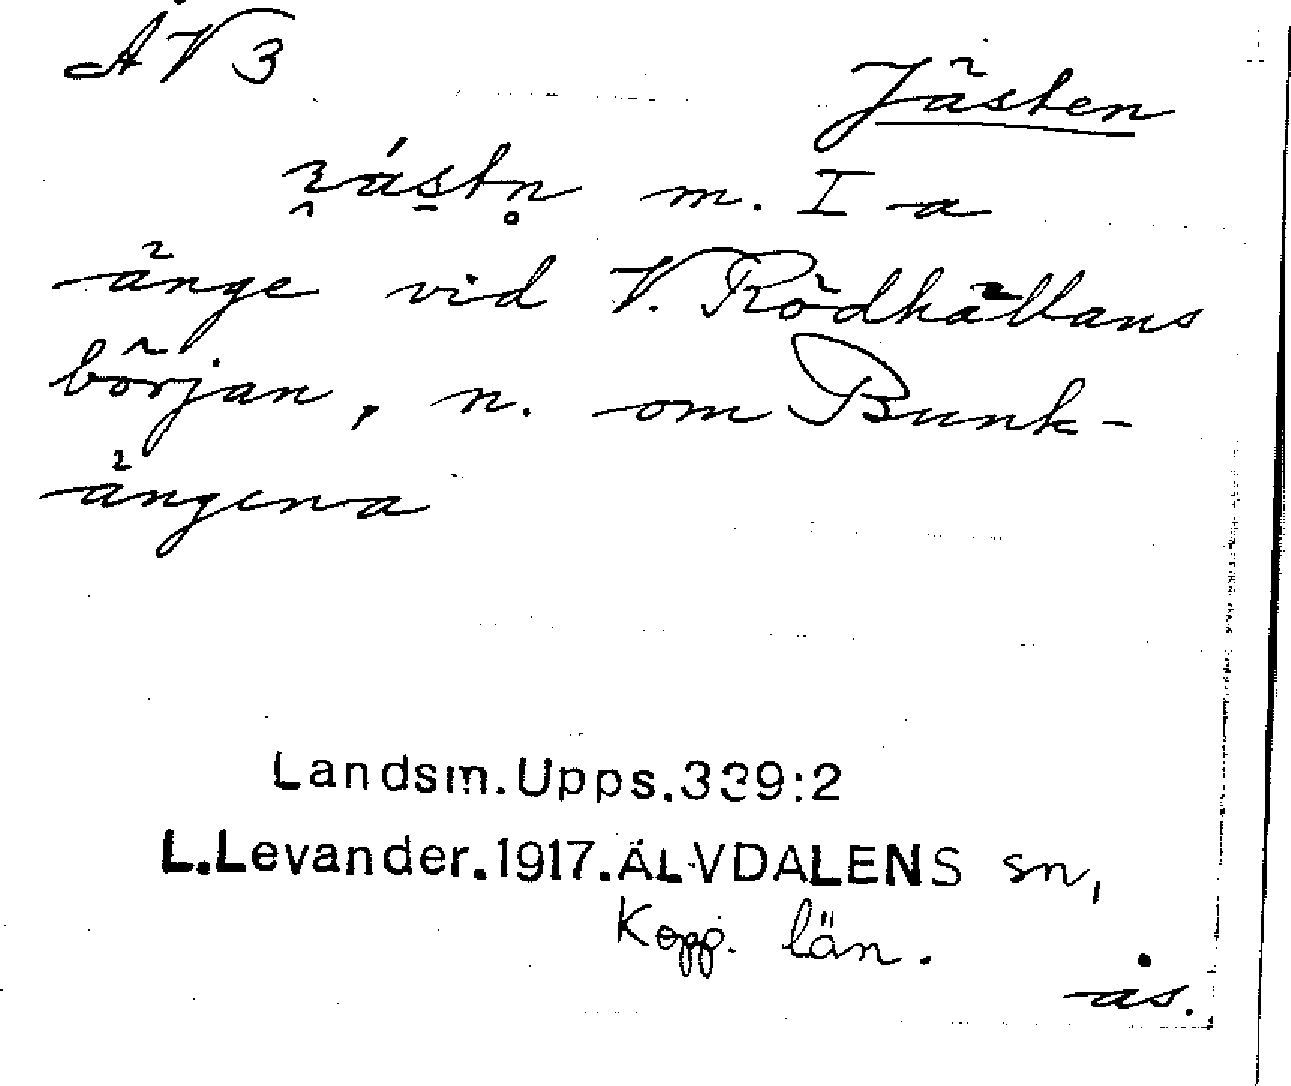 ÅV3
Jästen
m. I a
änge vid V. Rödhällans
början, n. om Bunk-
ängena
Landsm.Upps.339:2
L.Levander.1917.ÄLVDALENS sn,
Kopp. län.
ås.